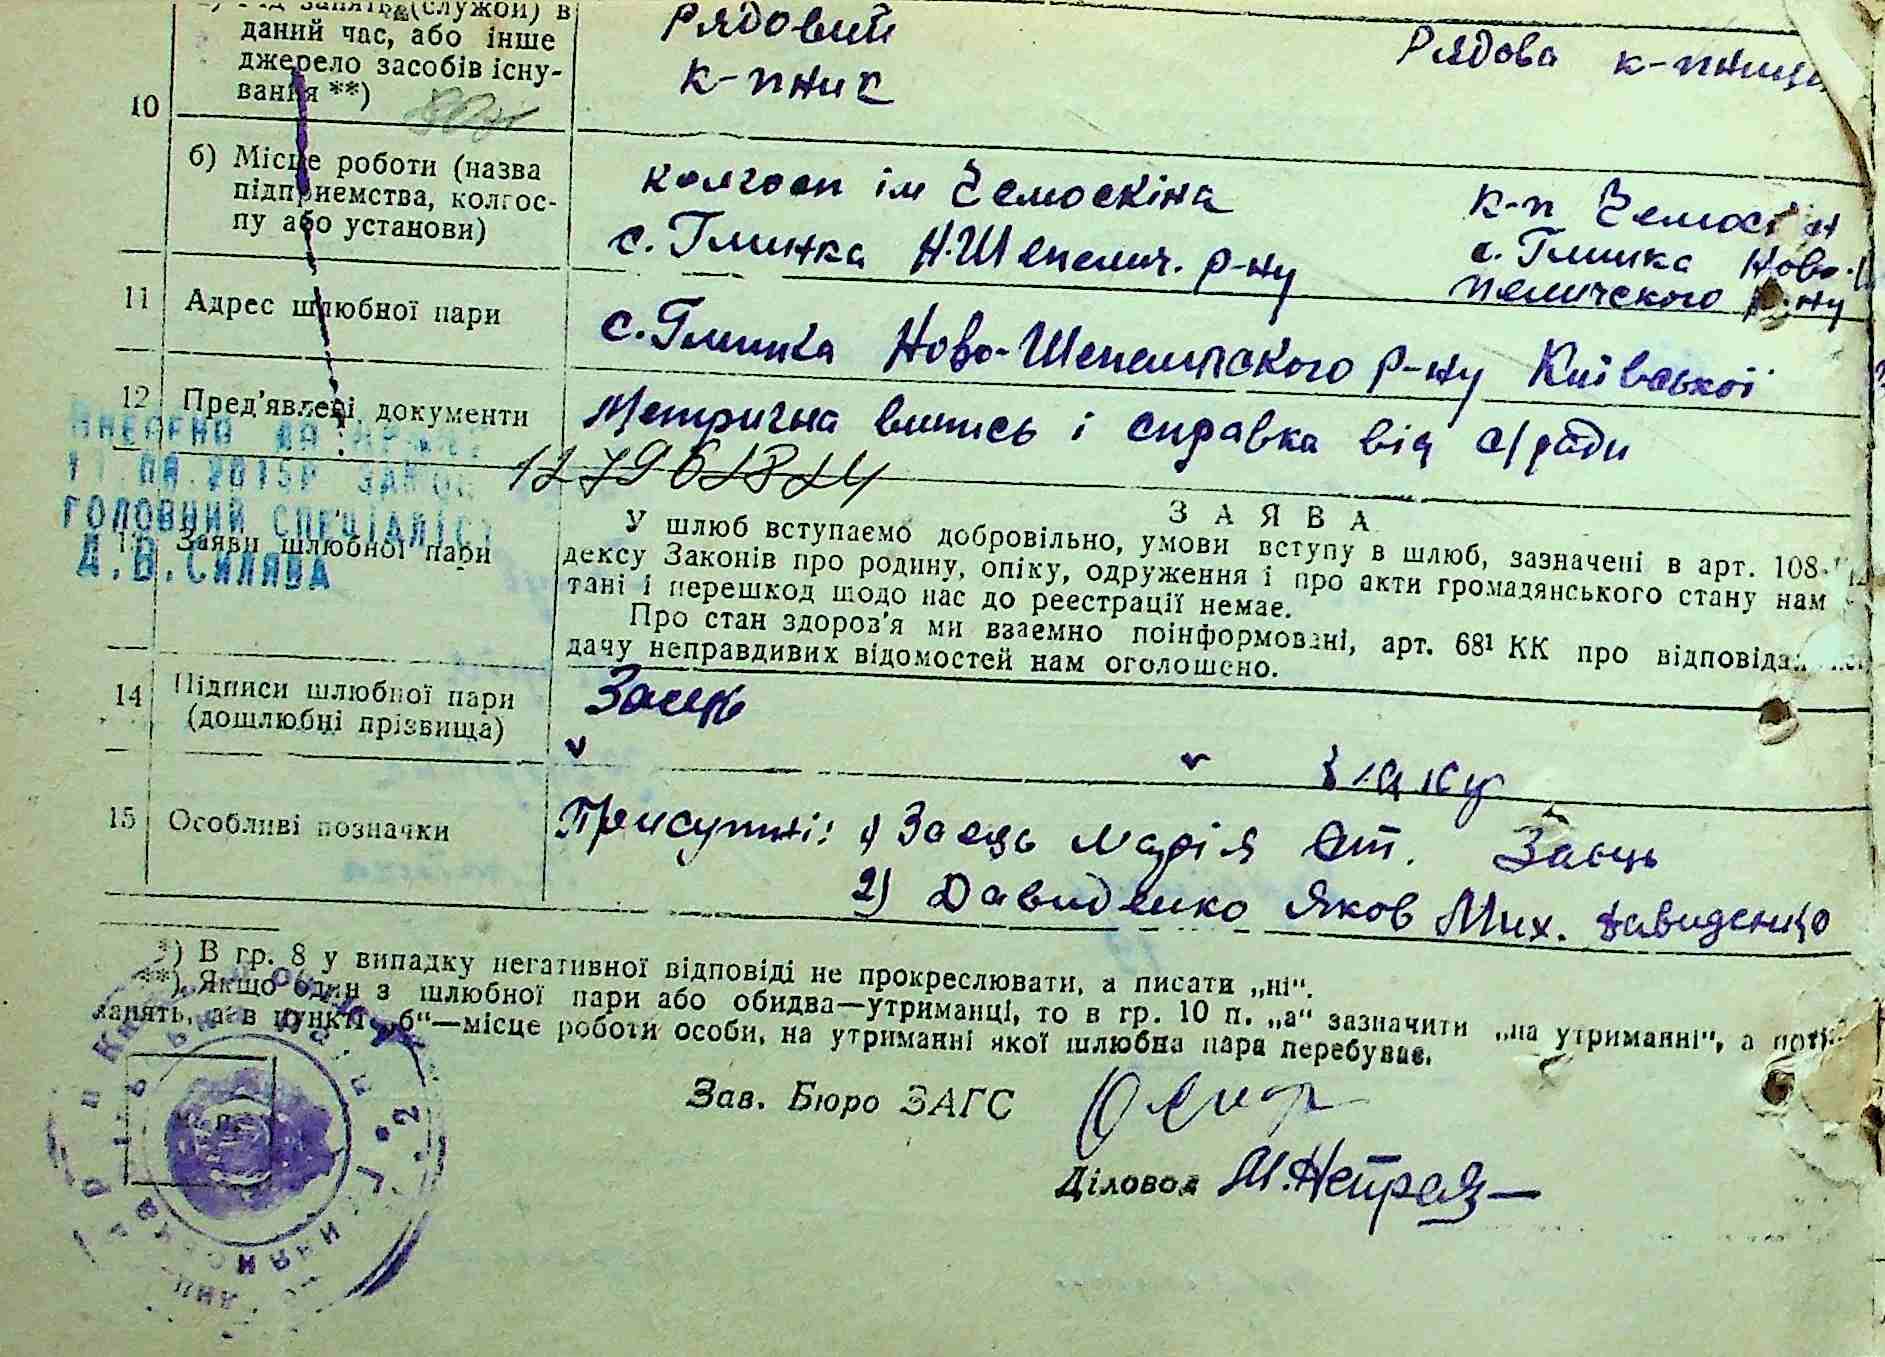 даний час, або інше
джерело засобів існу-
вання **)
Рядовий
к-пник
Рядова к-пниця
10
б) Місце роботи (назва
підприємства, колгос-
пу або установи)
колгосп ім Челюскіна
с. Глинка Н.Шепелич. р-ну
к-п Челюс
с. Глинка Ново-Ш
пеличского р-ну
11
Адрес шлюбної пари
с. Глинка Ново-Шепеличского р-ну Київської
12
Пред'явлені документи
Метрична випись і справка від с/ради
127961824
ВНЕСЕНО ДО
11.08.2015Р
ГОЛОВНИЙ СПЕЦІАЛІСТ
Д.В.СИЛЯВА
Заяви шлюбної пари
ЗАЯВА
У шлюб вступаємо добровільно, умови вступу в шлюб, зазначені в арт. 108-
дексу Законів про родину, опіку, одруження і про акти громадянського стану нам
тані і перешкод щодо нас до реестрації немає.
Про стан здоров'я ми взаємно поінформовані, арт. 68¹ КК про відповідал
дачу неправдивих відомостей нам оголошено.
14
Підписи шлюбної пари
(дошлюбні прізвища)
Заєць
15
Особливі позначки
Присутні: 1) Заєць Марія Ст. Заєць
2) Давиденко Яков Мих. Давиденко
*) В гр. 8 у випадку негативної відповіді не прокреслювати, а писати „ні".
**) Якщо один з шлюбної пари або обидва—утриманці, то в гр. 10 п. „а" зазначити „на утриманні", а
занять, а в пункті „б"—місце роботи особи, на утриманні якої шлюбна пара перебуває.
Зав. Бюро ЗАГС
Діловод